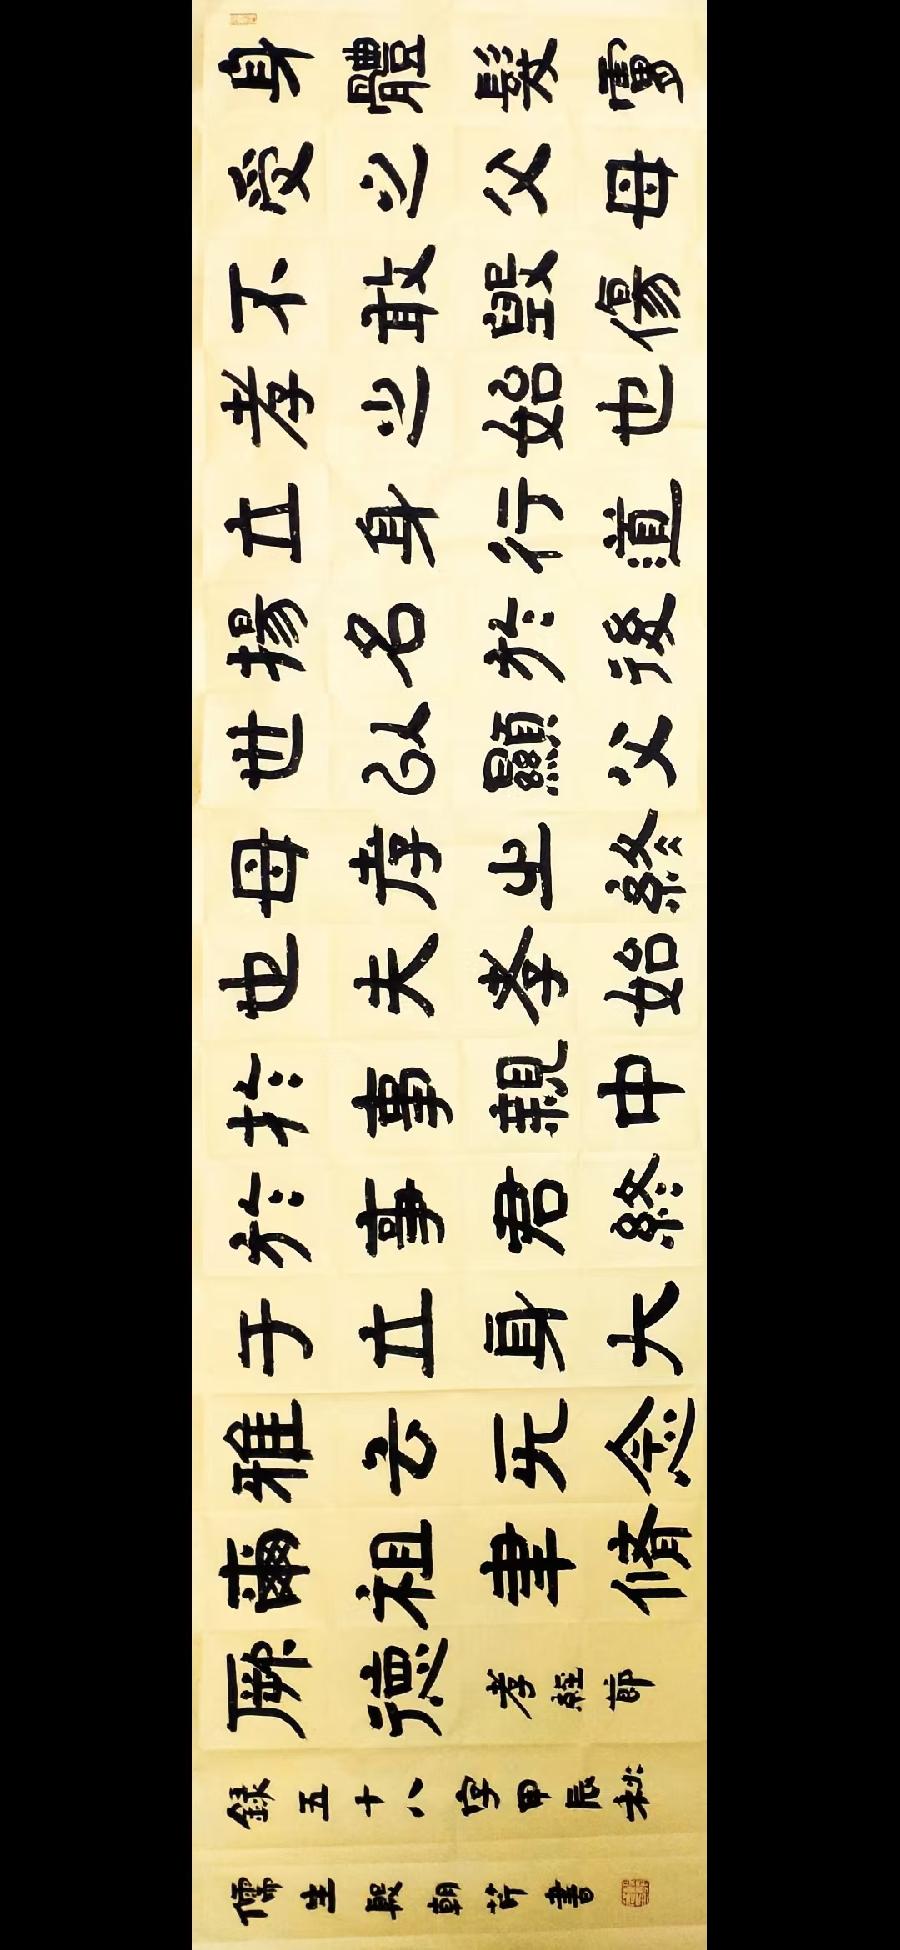 身體髮膚
受之父母
不敢毀傷
孝之始也
立身行道
揚名於後
世以顯父
母孝之終
也夫孝始
於事親中
於事君終
于立身大
雅云无念
爾祖聿脩
厥德孝經節
錄五十八字甲辰秋
儒生殷朝書